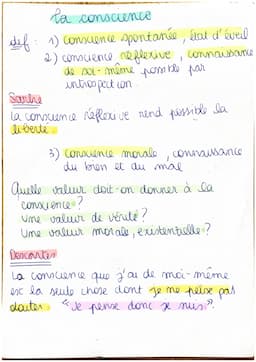 La conscience
def : 1) conscience spontanée, état d'éveil
2) conscience réflexive, connaissance
de soi-même possible par
introspection
Sartre
La conscience réflexive rend possible la
liberté.
3) Conscience morale, connaissance
du bien et du mal
Quelle valeur doit-on donner à la
conscience ?
Une valeur de vérité ?
Une valeur morale, existentielle ?
Descartes
La conscience que j'ai de moi-même
est la seule chose dont je ne peux pas
douter. "Je pense donc je suis".